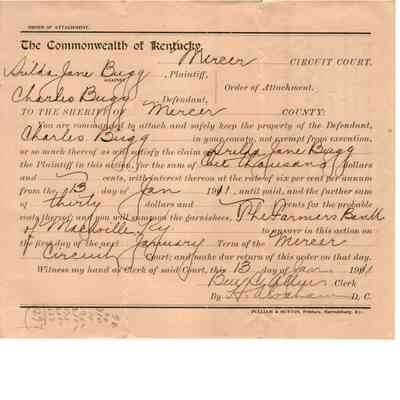 ORDER OF ATTACHMENT.
The Commonwealth of Kentucky,
Mercer CIRCUIT COURT.
Jane Bugg, Plaintiff,
AGAINST Order of Attachment.
Charles Bugg Defendant,
TO THE SHERIFF OF Mercer COUNTY:
You are commanded to attach and safely keep the property of the Defendant,
Charles Bugg in your county, not exempt from execution,
or so much thereof as will satisfy the claim of Jane Bugg
the Plaintiff in this action, for the sum of One thousand dollars
and cents, with interest thereon at the rate of six per cent per annum
from the 13 day of Jan 1911, until paid, and the further sum
of thirty dollars and cents for the probable
costs thereof; and you will summon the garnishees, The Farmers Bank
of Mackville Ky to answer in this action on
the first day of the next January Term of the Mercer
Circuit Court; and make due return of this order on that day.
Witness my hand as Clerk of said Court, this 13 day of Jan 1911
Ben C. Allin Clerk
By D. C.
PULLIAM & HUTTON, Printers, Harrodsburg, Ky.